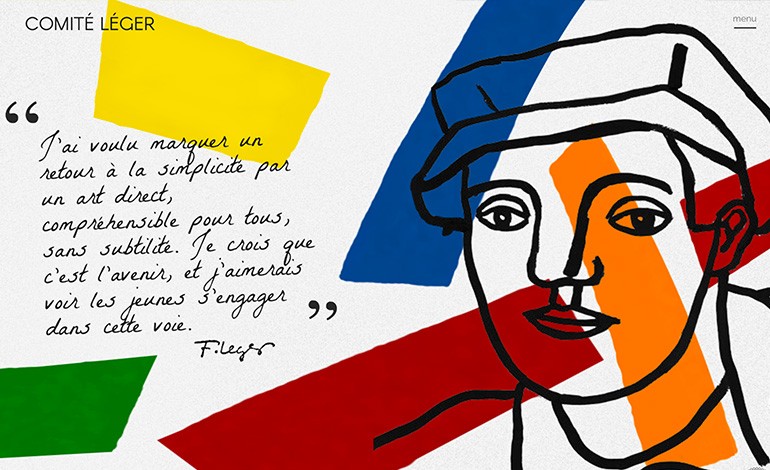 COMITÉ LÉGER
menu
“
J'ai voulu marquer un
retour à la simplicité par
un art direct,
compréhensible pour tous,
sans subtilité. Je crois que
c'est l'avenir, et j'aimerais
voir les jeunes s'engager
dans cette voie.
”
F. Leger